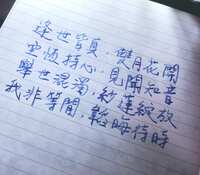 逢世皆夏．雙月花開
空恆持心．見聞知音
舉世混濁．紛連綻放
我非等閒．韜晦待時